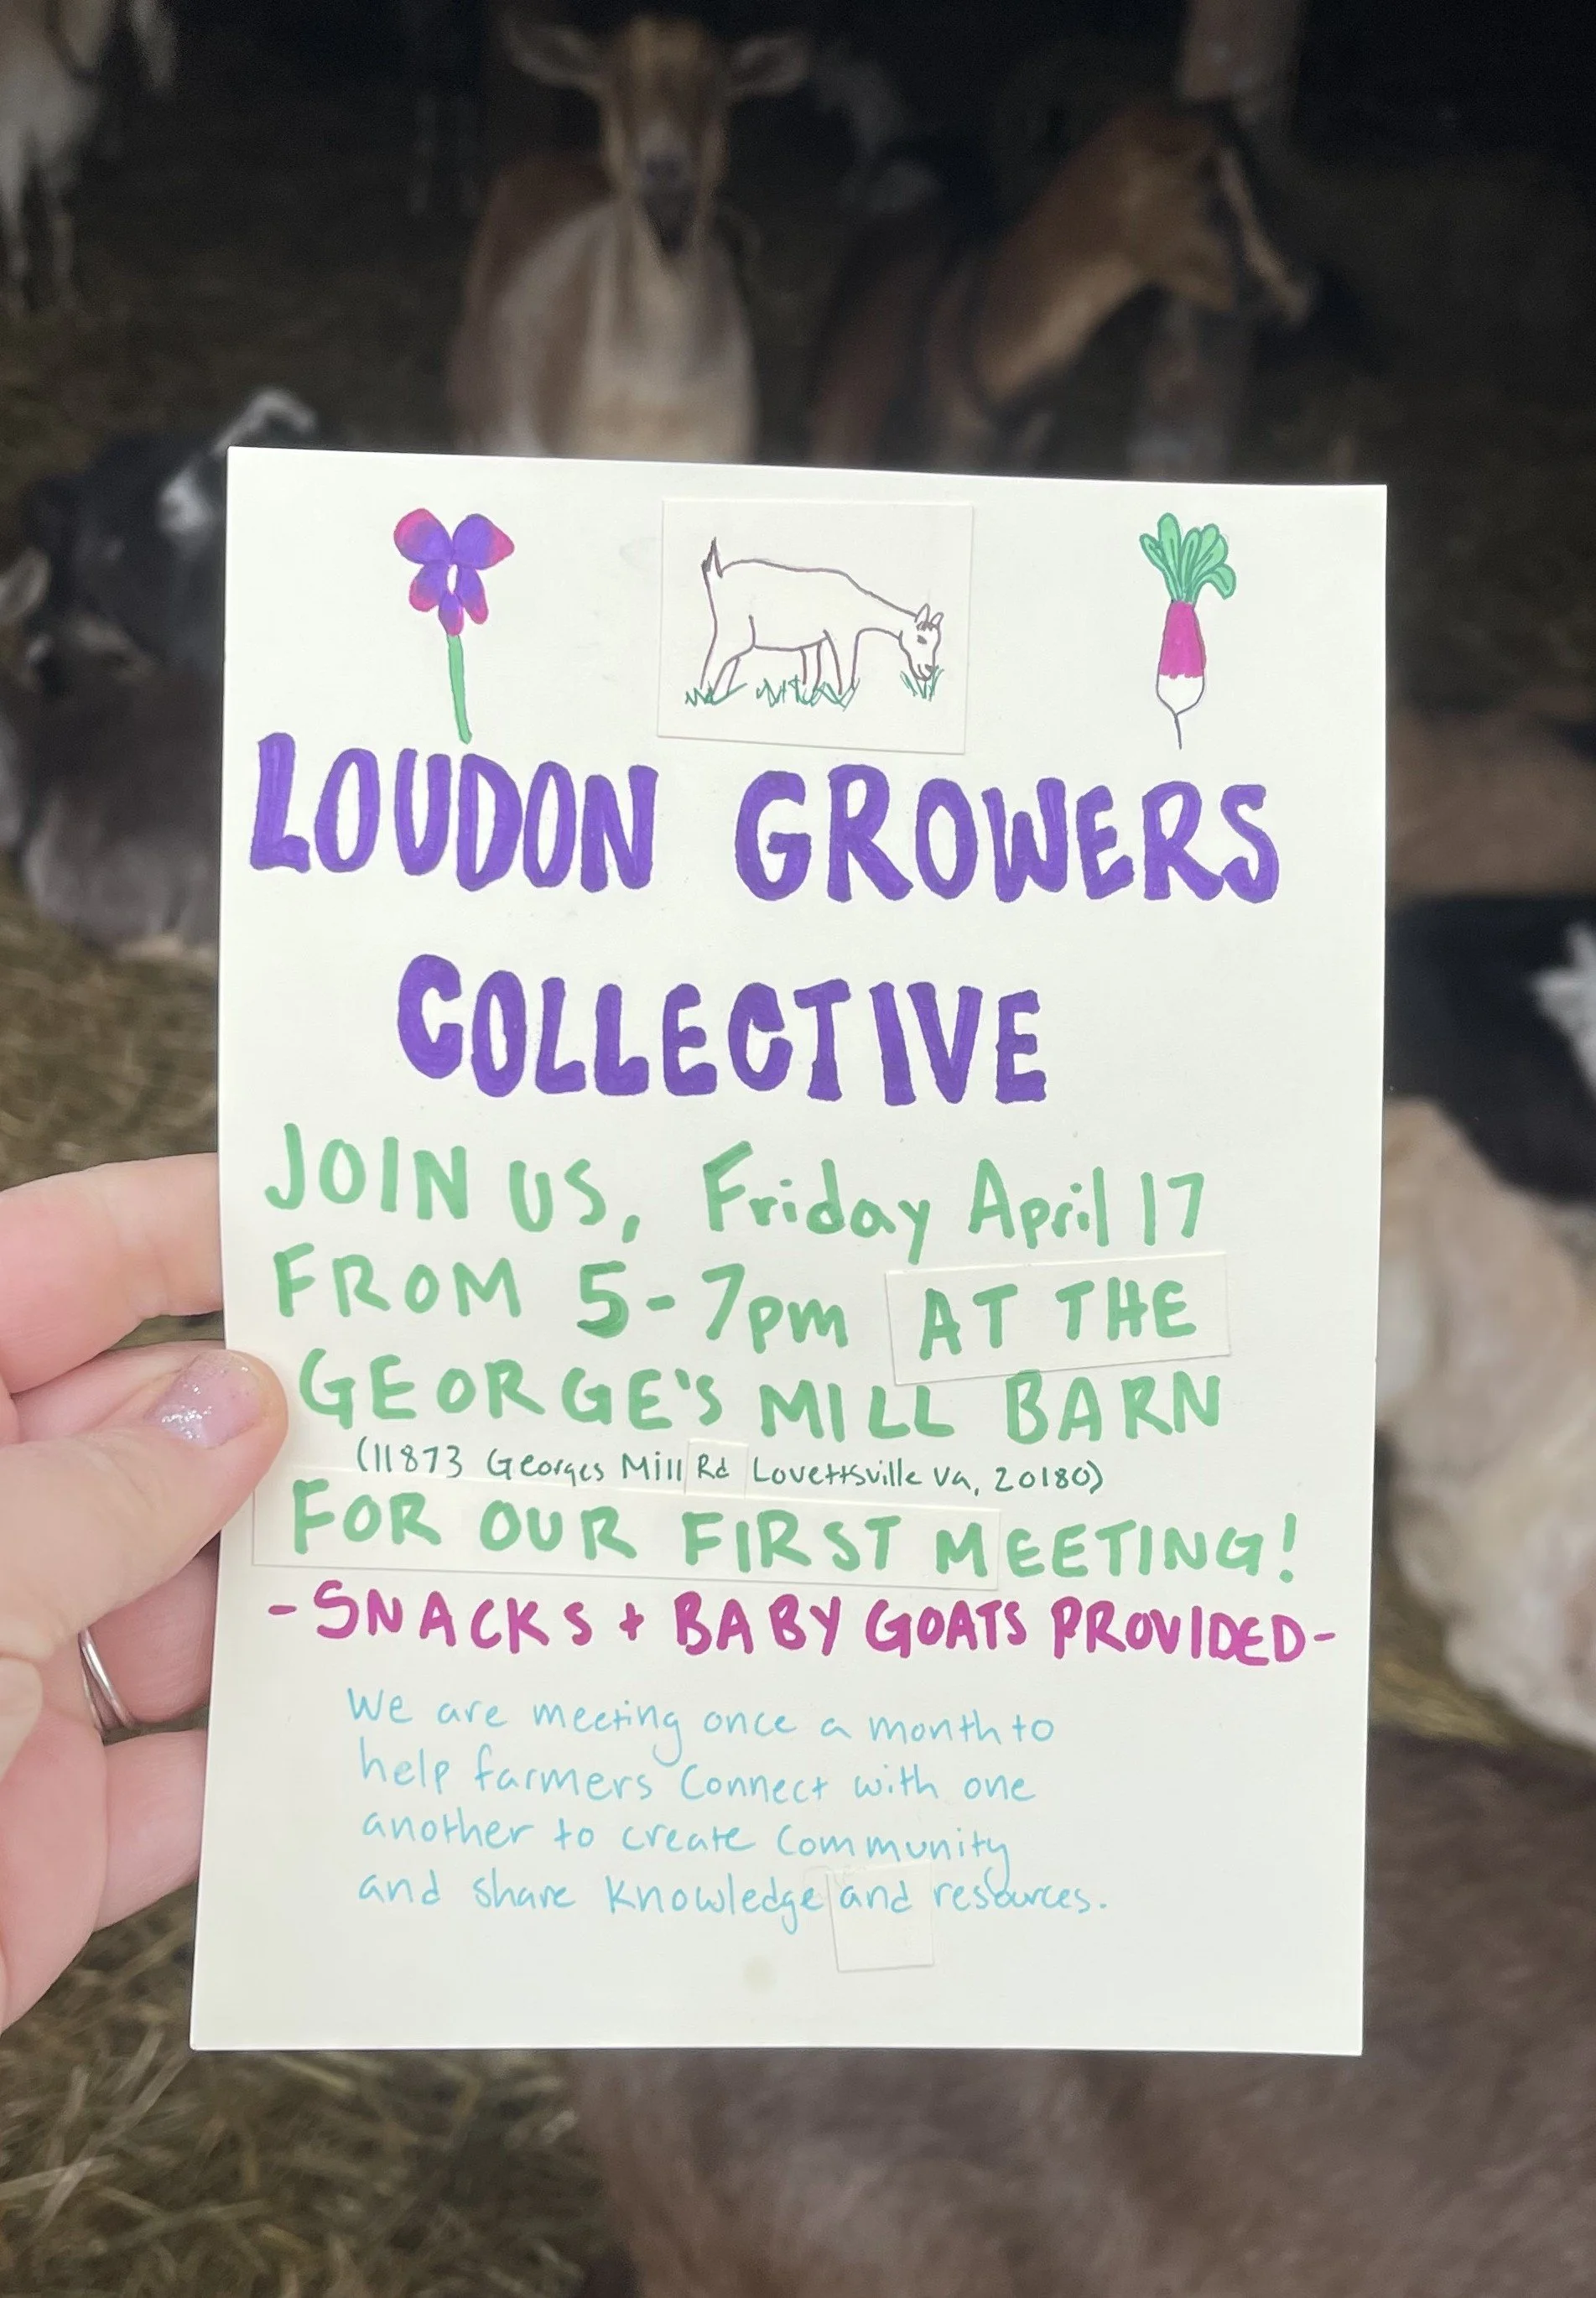 LOUDON GROWERS
COLLECTIVE
JOIN US, Friday April 17
FROM 5-7pm AT THE
GEORGE'S MILL BARN
(11873 Georges Mill Rd Lovettsville Va, 20180)
FOR OUR FIRST MEETING!
-SNACKS + BABY GOATS PROVIDED-
We are meeting once a month to
help farmers connect with one
another to create community
and share knowledge and resources.